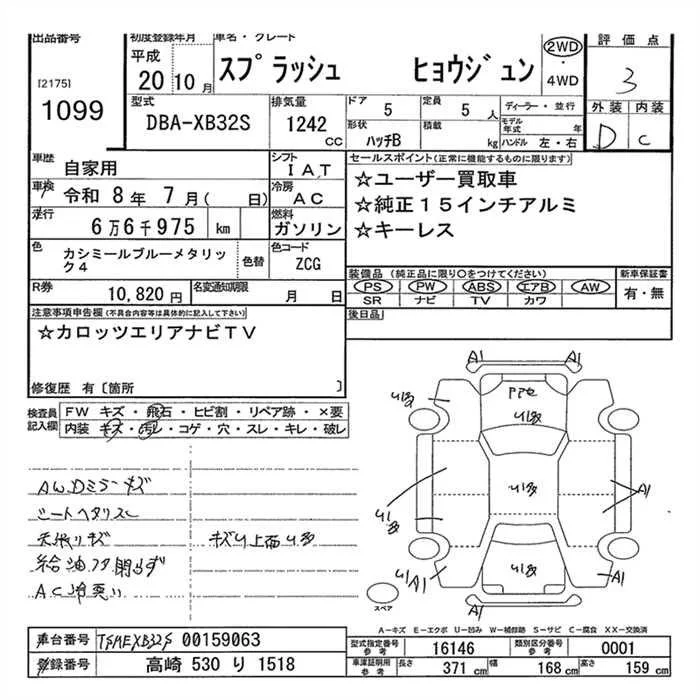 出品番号
[2175]
1099
初度登録年月
平成
20 10月
車名・グレード
スプラッシュ ヒョウジュン
2WD
・
4WD
評価点
3
外装 内装
D C
型式
DBA-XB32S
排気量
1242
CC
ドア 5
定員 5人
形状 ハッチB
積載 kg
ディーラー・並行
モデル年式 年
ハンドル 左・右
車歴 自家用
シフト IAT
車検 令和 8年 7月( 日)
冷房 AC
走行 6万6千975 km
燃料 ガソリン
色 カシミールブルーメタリック4
色替
色コード ZCG
R券 10,820円
名変通知期限 月 日
セールスポイント(正常に機能するものに限ります)
☆ユーザー買取車
☆純正15インチアルミ
☆キーレス
装備品(純正品に限り○をつけてください)
PS PW ABS エアB AW
SR ナビ TV カワ
新車保証書
有・無
後日品
注意事項申告欄(不具合内容等は具体的に記入して下さい)
☆カロッツエリアナビTV
修復歴 有〔箇所 〕
検査員記入欄
FW キズ・飛石・ヒビ割・リペア跡・×要
内装 キズ・汚レ・コゲ・穴・スレ・キレ・破レ
AW.Dミラーキズ
シートヘタリスレ
天張リキズ
キズU上面U多
給油フタ閉らず
AC冷悪い
A1 A1
U1多
PP色
U1多
U1多
U1多
A1
U1多
U1 A1
A1
A1
スペア
A-キズ E-エクボ U-凹み W-補修跡 S-サビ C-腐食 XX-交換済
車台番号 TSMEXB32S 00159063
登録番号 高崎 530 り 1518
型式指定番号参考 16146
類別区分番号参考 0001
車庫証明用参考 長さ 371 cm 幅 168 cm 高さ 159 cm